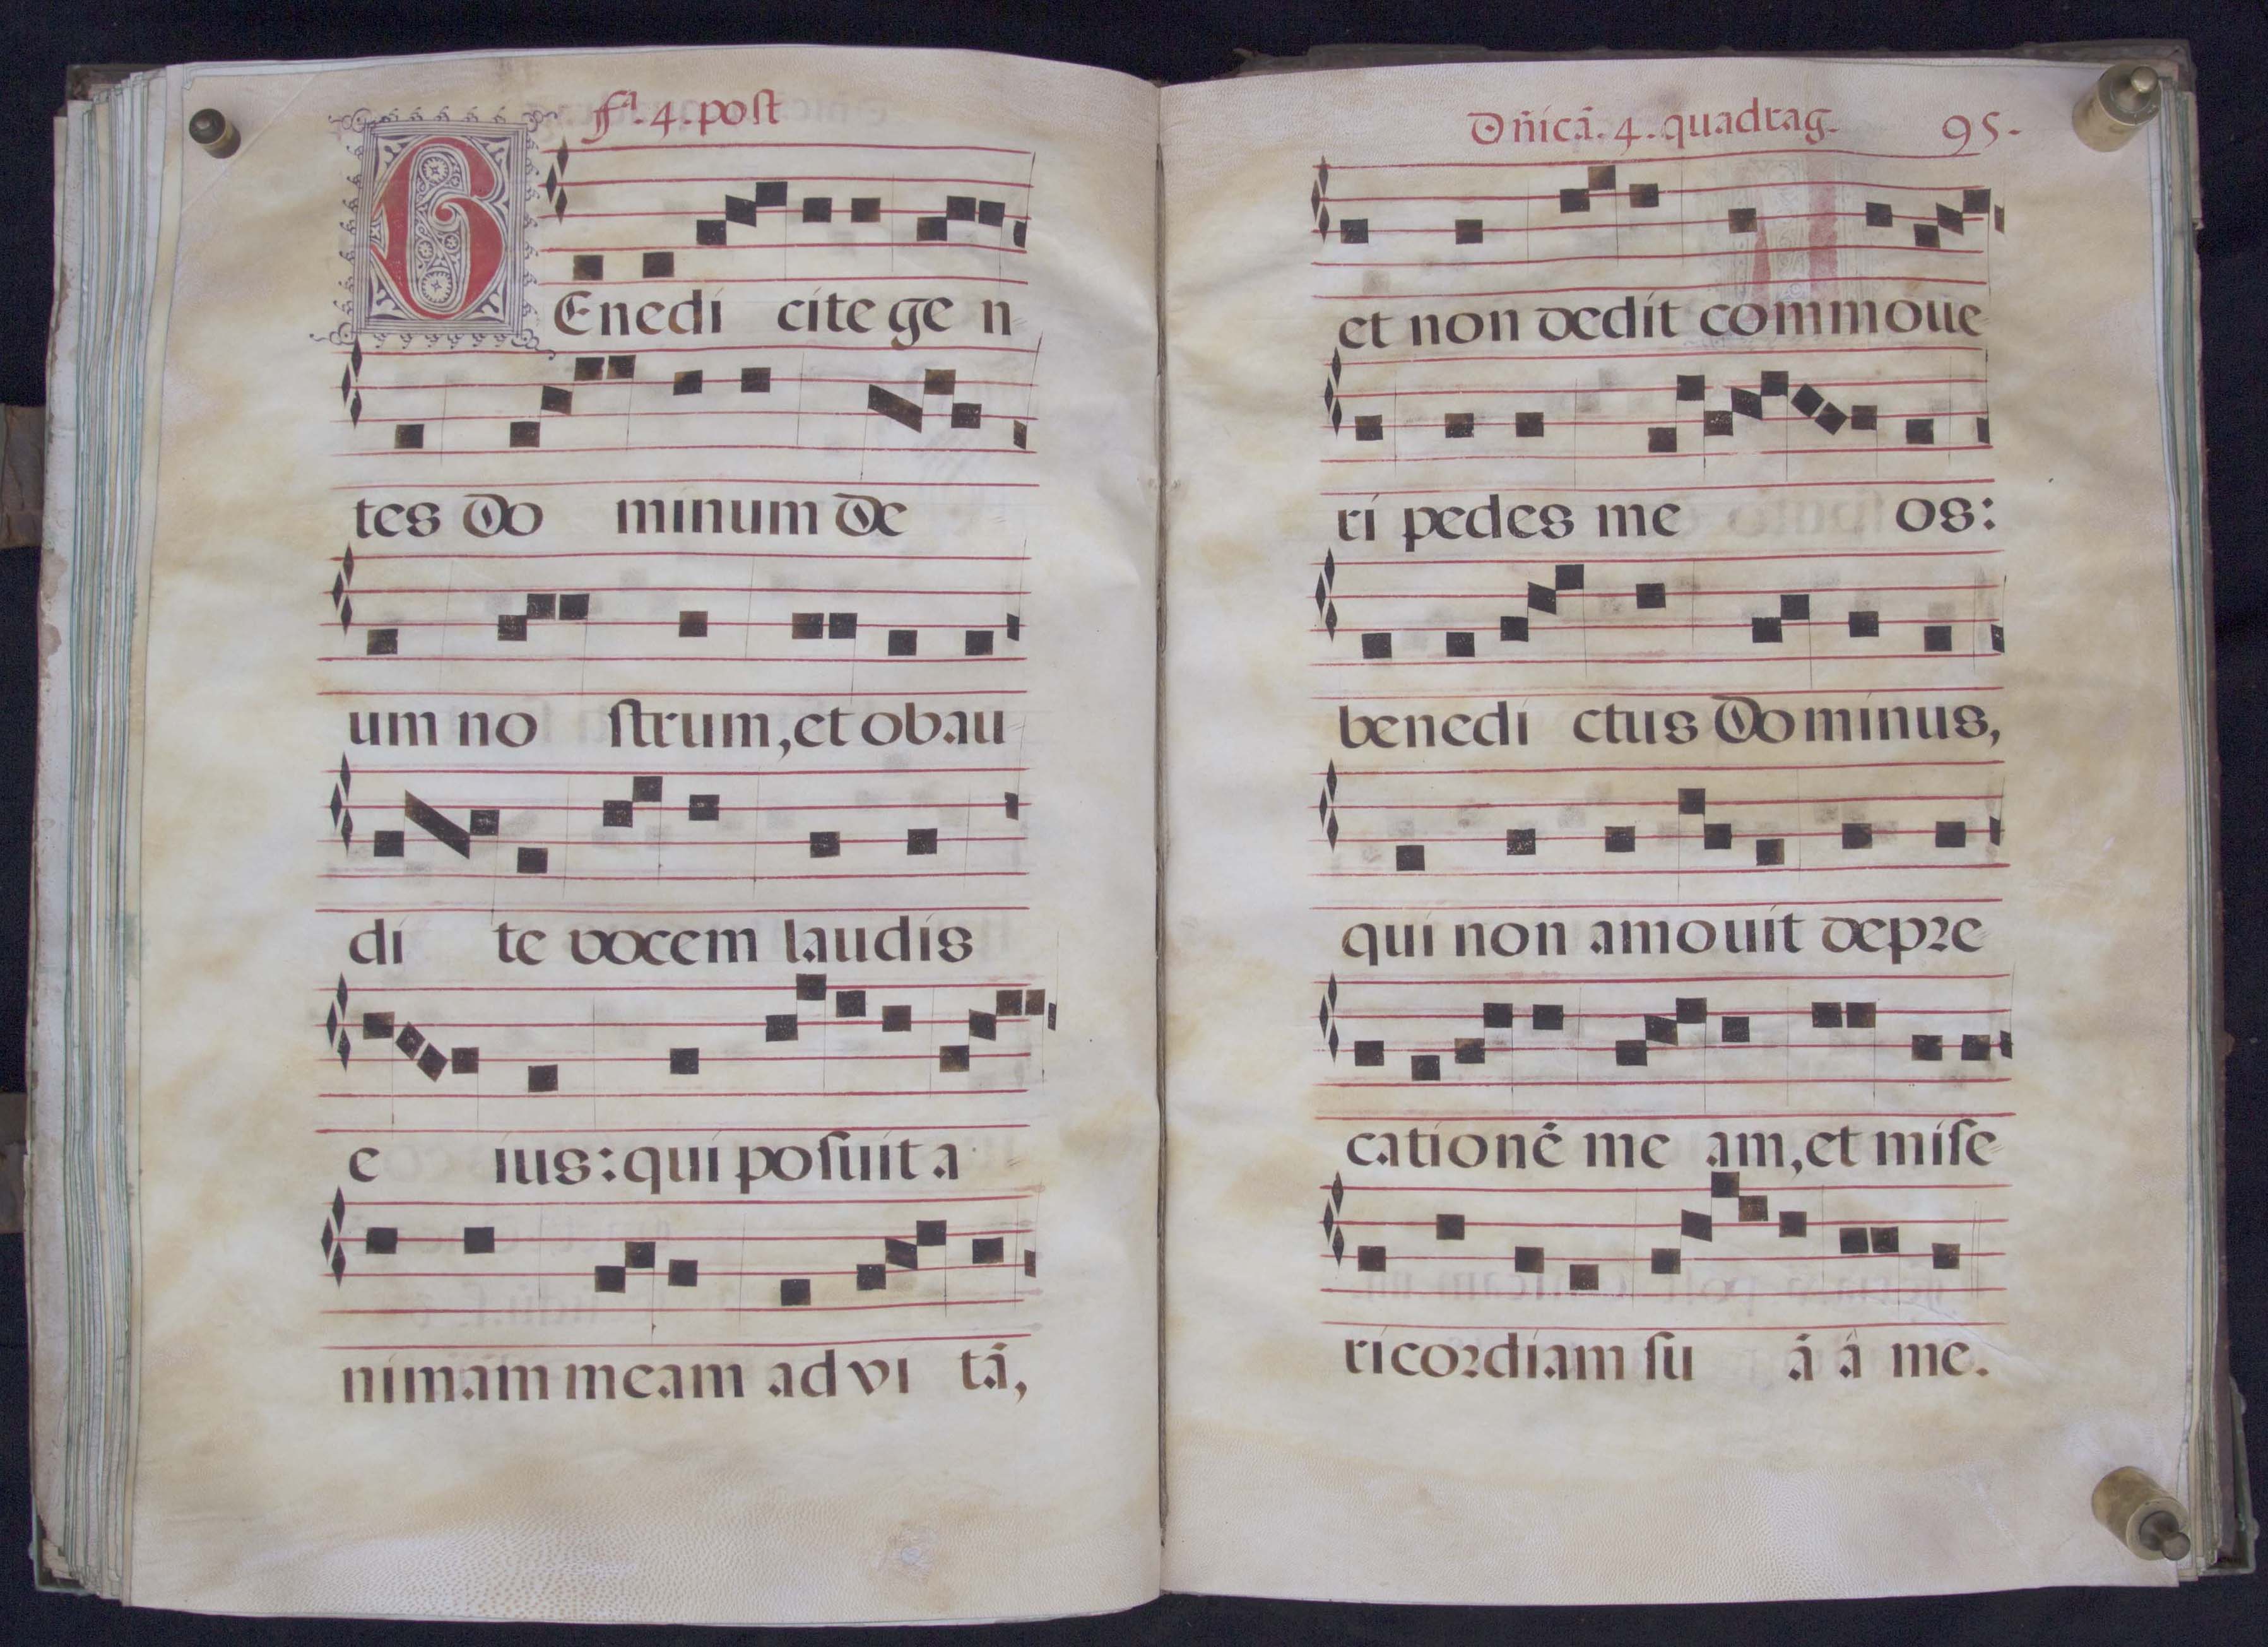 fª. 4. post
BEnedi cite ge n
tes Do minum De
um no strum, et obau
di te vocem laudis
e ius: qui posuit a
nimam meam ad vi tā,
Dñicā. 4. quadrag. 95.
et non dedit commoue
ri pedes me os:
benedi ctus Dominus,
qui non amouit depre
cationē me am, et mise
ricordiam su ā á me.